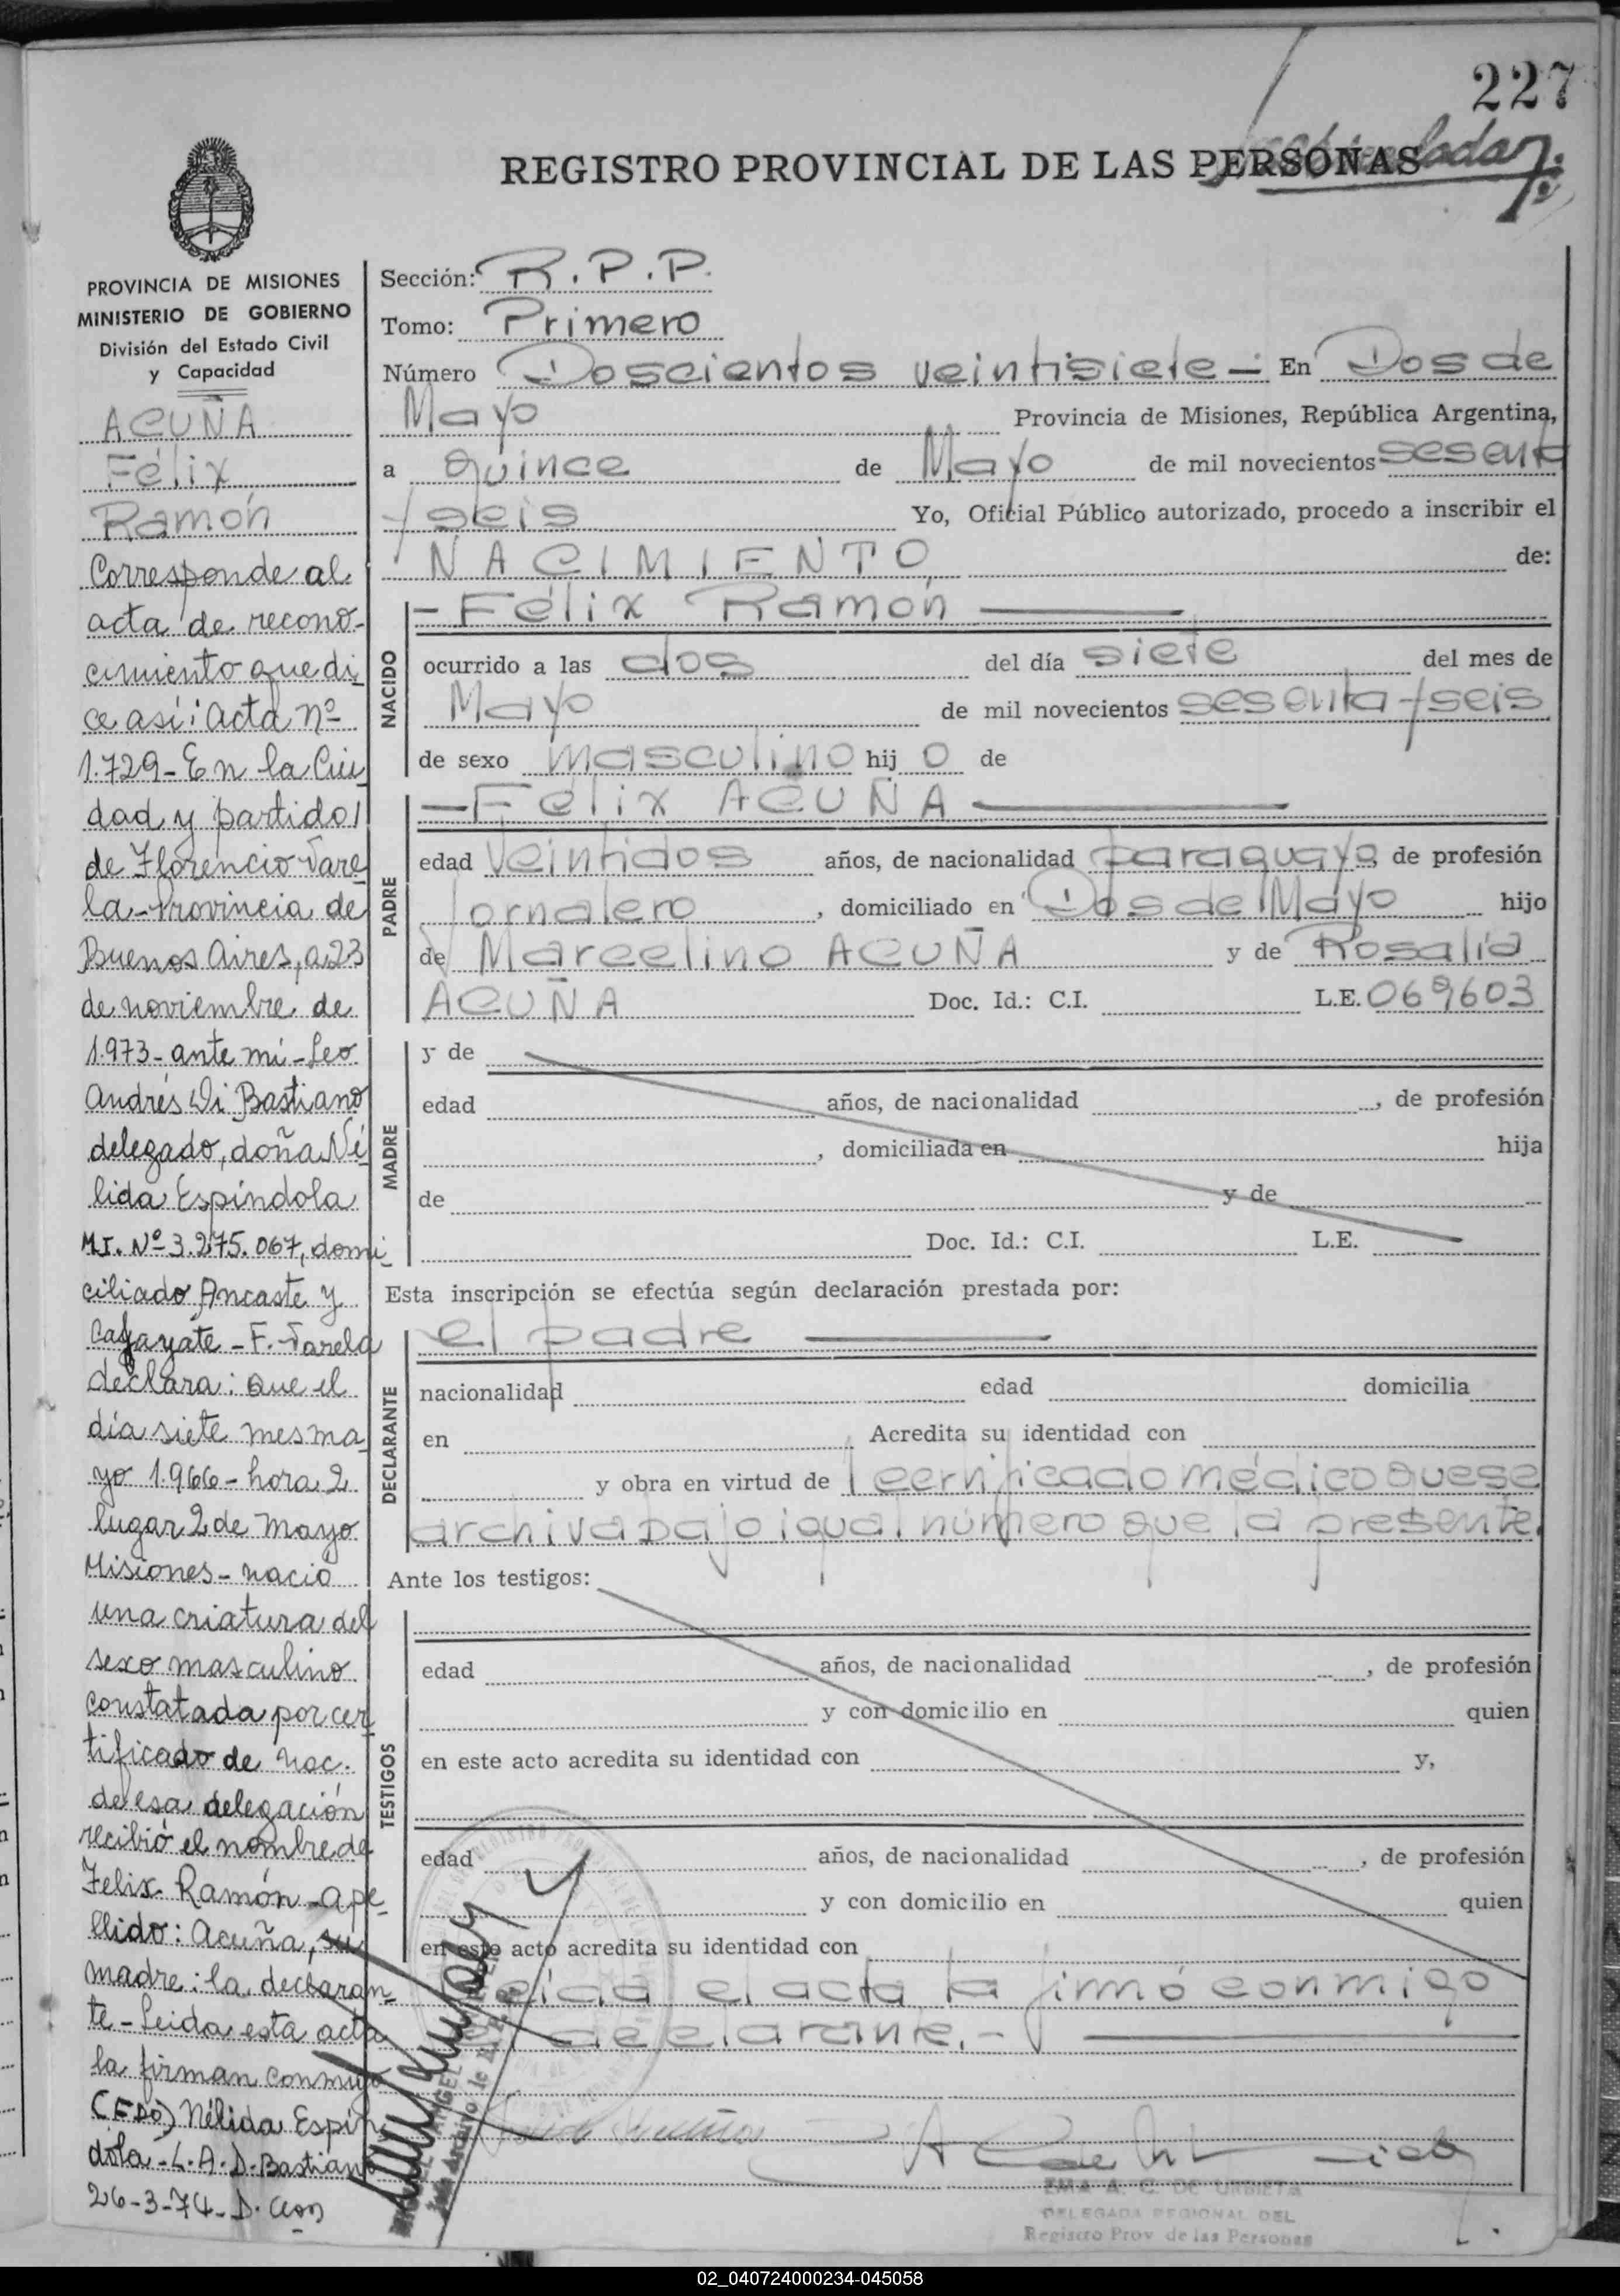 227
REGISTRO PROVINCIAL DE LAS PERSONAS
PROVINCIA DE MISIONES
MINISTERIO DE GOBIERNO
División del Estado Civil
y Capacidad
ACUÑA
Félix
Ramón
Corresponde al
acta de recono-
cimiento que di-
ce así: Acta nº
1.729- En la Ciu
dad y partido
de Florencio Vare
la-Provincia de
Buenos Aires, a 23
de noviembre de
1.973- ante mí- Leo
Andrés Di Bastiano
delegado, doña Né
lida Espíndola
M.I. Nº 3.275.067, domi
ciliado Ancaste y
Cafayate - F. Varela
declara: que el
día siete mes ma
yo 1.966 - hora 2
lugar 2 de Mayo
Misiones - nació
una criatura del
sexo masculino
constatada por cer
tificado de nac.
de esa delegación
recibió el nombre de
Felix Ramón - ape
llido: Acuña, su
madre: la declaran-
te - Leida esta acta
la firman conmigo
(FDO) Nélida Espín
dola - L. A. D. Bastiano
26-3-74- D.
Sección: R.P.P.
Tomo: Primero
Número Doscientos veintisiete - En Dos de
Mayo Provincia de Misiones, República Argentina,
a quince de Mayo de mil novecientos sesenta
y seis Yo, Oficial Público autorizado, procedo a inscribir el
NACIMIENTO de:
NACIDO
- Félix Ramón
ocurrido a las dos del día siete del mes de
Mayo de mil novecientos sesenta y seis
de sexo masculino hij o de
PADRE
- Félix ACUÑA
edad veintidos años, de nacionalidad paraguayo, de profesión
Jornalero, domiciliado en Dos de Mayo hijo
de Marcelino ACUÑA y de Rosalia
ACUÑA Doc. Id.: C.I. L.E. 069603
MADRE
y de
edad años, de nacionalidad , de profesión
, domiciliada en hija
de y de
Doc. Id.: C.I. L.E.
Esta inscripción se efectúa según declaración prestada por:
DECLARANTE
el padre
nacionalidad edad domicilia
en Acredita su identidad con
y obra en virtud de certificado médico que se
archiva bajo igual número que la presente.
Ante los testigos:
TESTIGOS
edad años, de nacionalidad , de profesión
y con domicilio en quien
en este acto acredita su identidad con y,
edad años, de nacionalidad , de profesión
y con domicilio en quien
en este acto acredita su identidad con
Leida el acta la firmó conmigo
declarante.-
EMA A. C. DE URBIETA
DELEGADA REGIONAL DEL
Registro Prov de las Personas
02_040724000234-045058